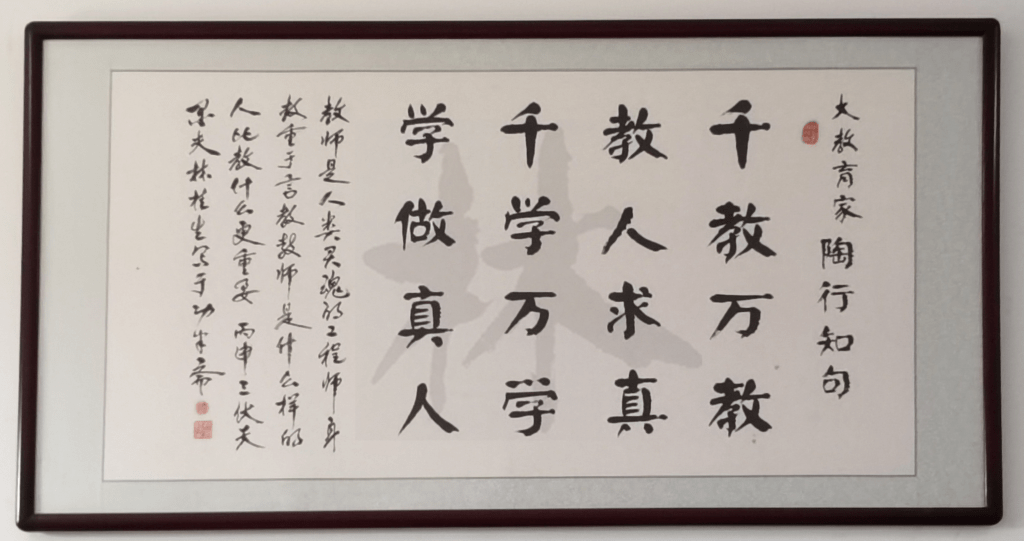 大教育家陶行知句
千教万教
教人求真
千学万学
学做真人
教师是人类灵魂的工程师身
教重于言教教师是什么样的
人比教什么更重要 丙申三伏天
愚夫林桂生写于功半斋
林